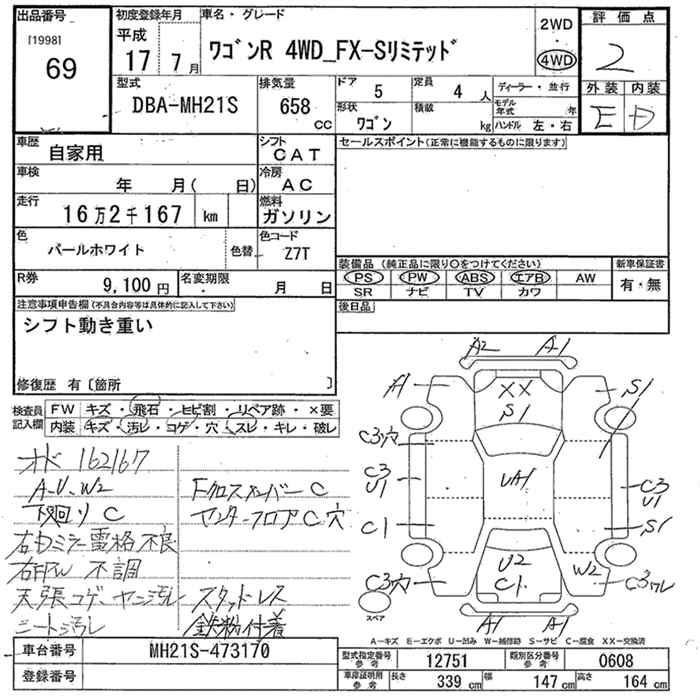 出品番号
[1998]
69
初度登録年月
平成
17 7月
車名・グレード
ワゴンR 4WD_FX-Sリミテッド
2WD
4WD
評価点
2
外装 内装
E D
型式
DBA-MH21S
排気量
658 cc
ドア
5
定員
4人
形状
ワゴン
積載
kg
ディーラー・並行
モデル年式 年
ハンドル 左・右
車歴
自家用
シフト
CAT
車検
年 月( 日)
冷房
AC
走行
16万2千167 km
燃料
ガソリン
色
パールホワイト
色替
色コード
Z7T
R券
9,100円
名変期限
月 日
セールスポイント(正常に機能するものに限ります)
装備品(純正品に限り○をつけてください)
PS PW ABS エアB AW
SR ナビ TV カワ
新車保証書
有・無
後日品
注意事項申告欄(不具合内容等は具体的に記入して下さい)
シフト動き重い
修復歴 有〔箇所 〕
検査員記入欄
FW キズ・飛石・ヒビ割・リペア跡・×要
内装 キズ・汚レ・コゲ・穴・スレ・キレ・破レ
オド 162167
A.U.W2
下廻リ C
右ドミラー電格不良
右FPW 不調
天張コゲ・ヤニ汚レ
シート汚レ
Fクロスメンバー C
センターフロア C 穴
スタッドレス
鉄粉付着
A2 A1
A1
XX
S1
S1
C3穴
C3
U1
UA1
C3
U1
C1
S1
U2
C1
W2
C3穴
C3ワレ
A1 A1
スペア
A-キズ E-エクボ U-凹み W-補修跡 S-サビ C-腐食 XX-交換済
車台番号
MH21S-473170
登録番号
型式指定番号 参考
12751
類別区分番号 参考
0608
車庫証明用 参考
長さ 339 cm
幅 147 cm
高さ 164 cm